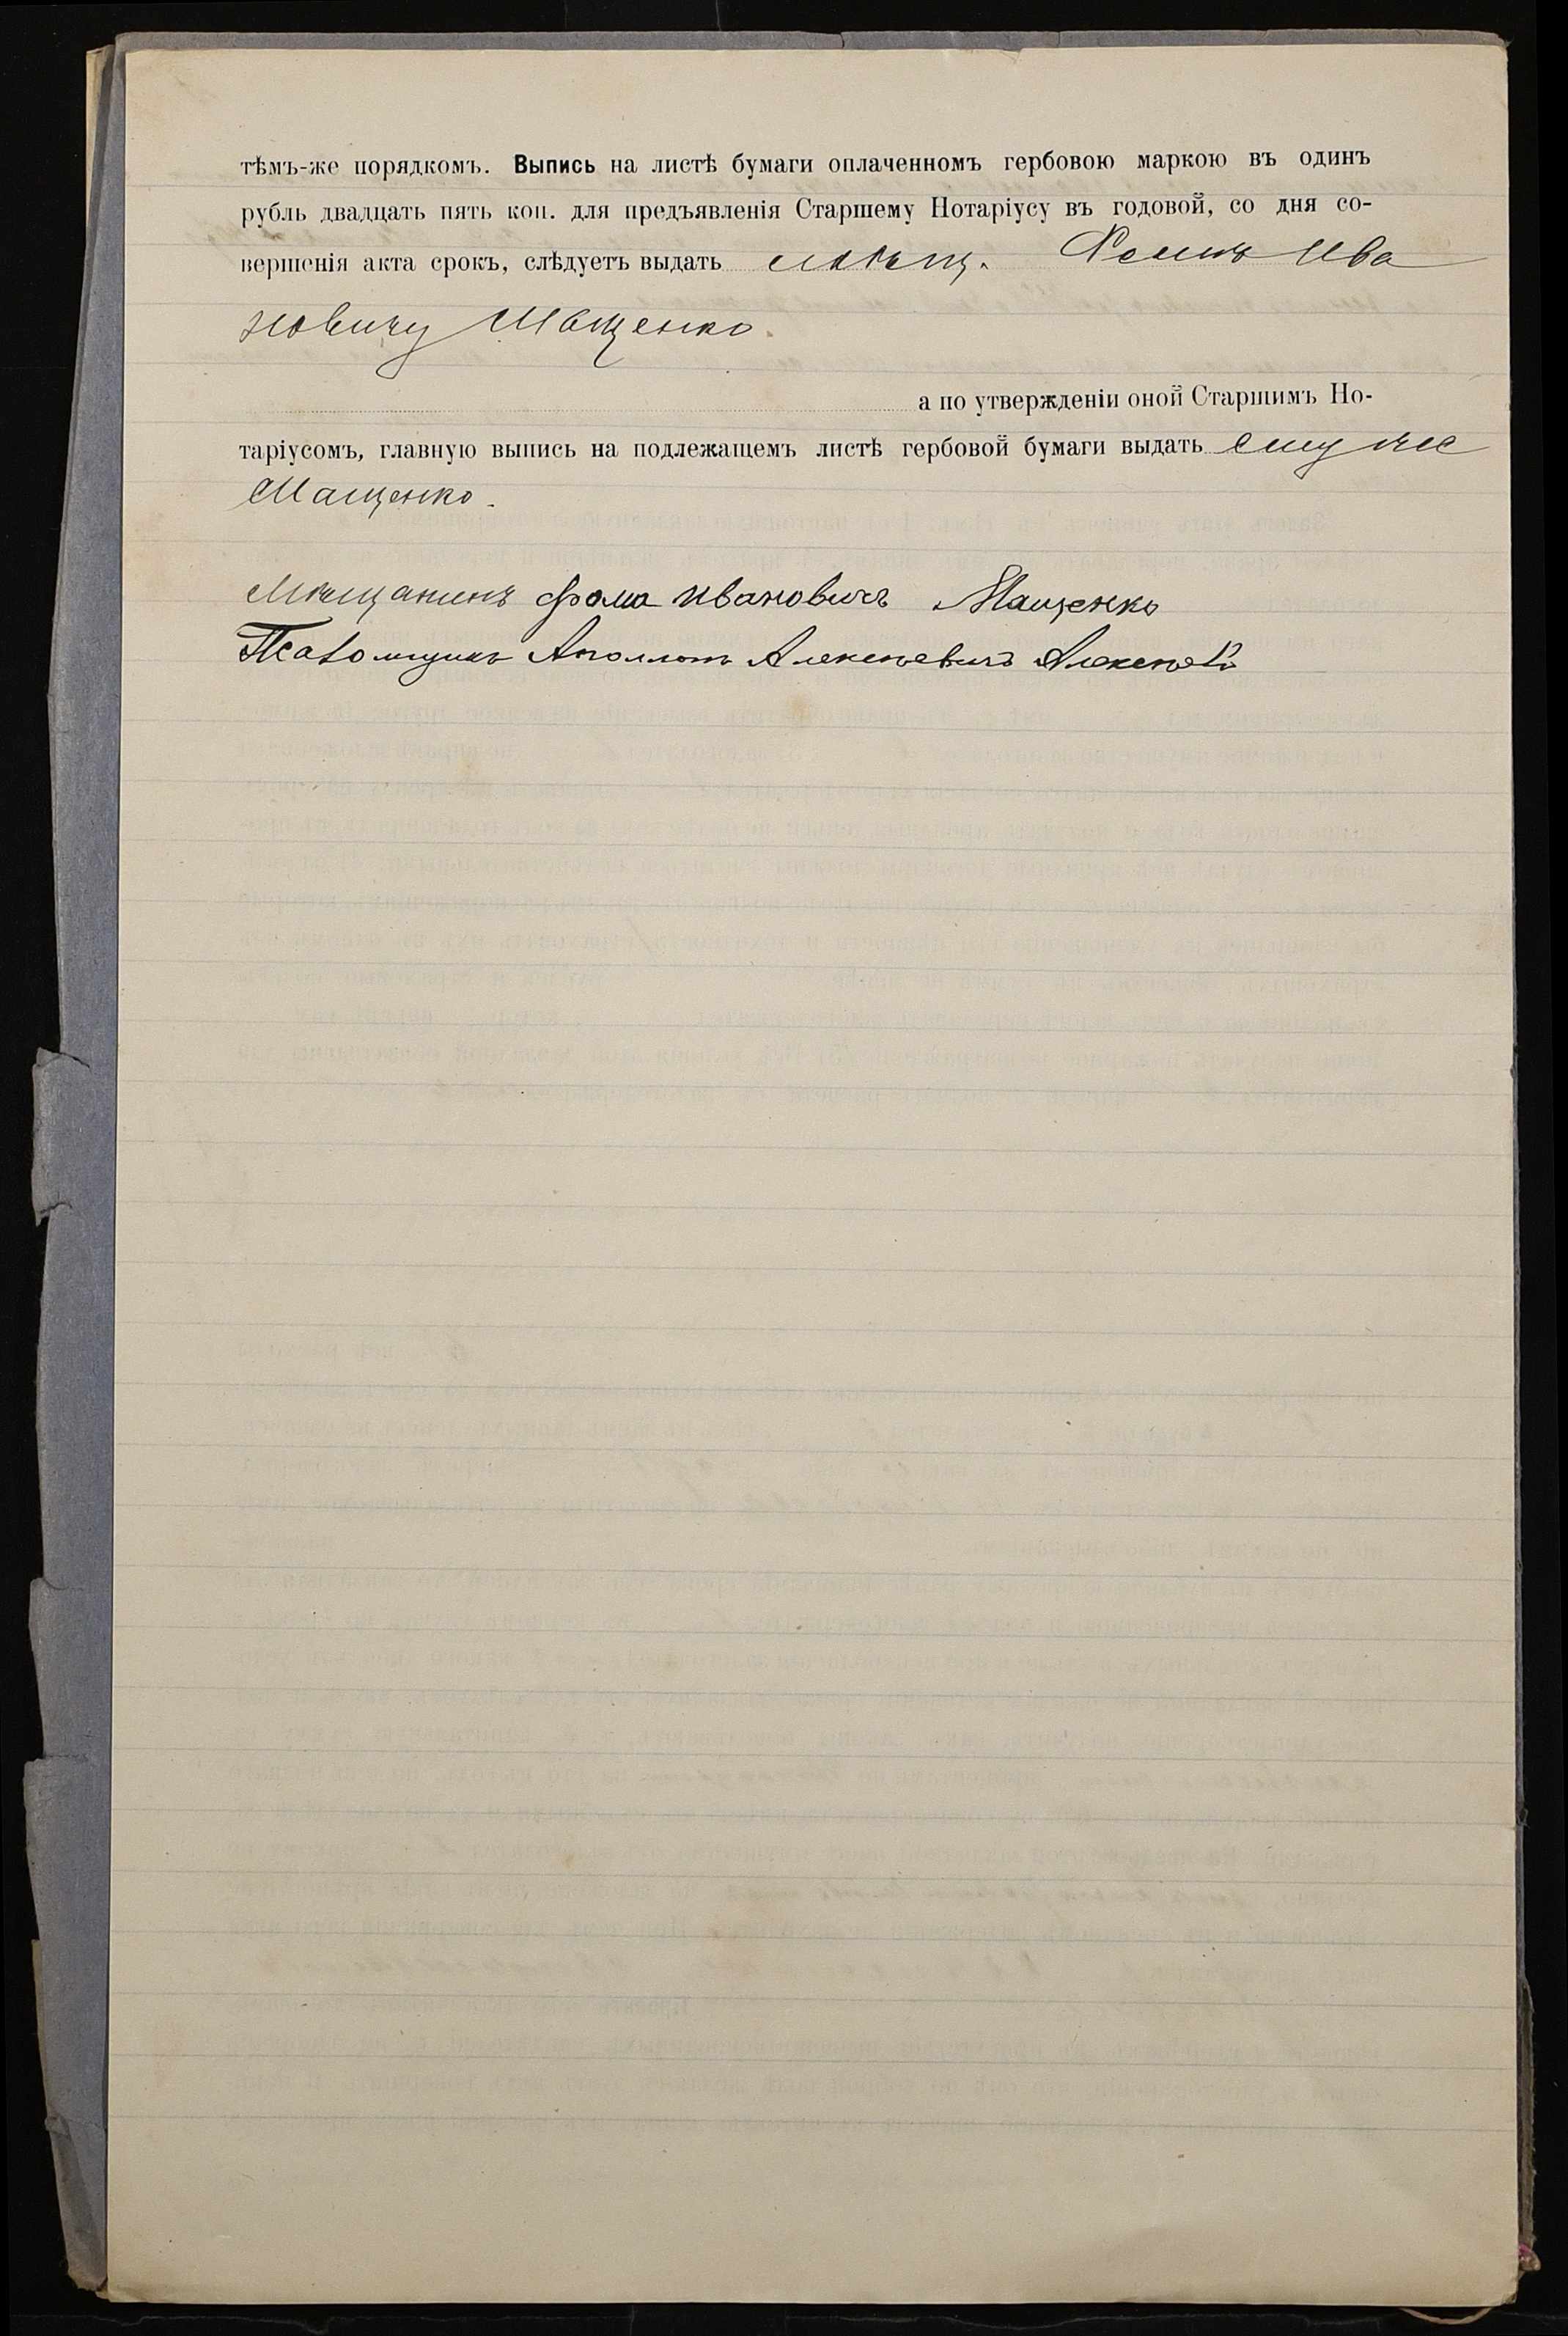 тѣмъ-же порядкомъ. Выпись на листѣ бумаги оплаченномъ гербовою маркою въ одинъ
рубль двадцать пять коп. для предъявленія Старшему Нотаріусу въ годовой, со дня со-
вершенія акта срокъ, слѣдуетъ выдать мѣщ. Ѳомѣ Ива
новичу Мащенко.
а по утвержденіи оной Старшимъ Но-
таріусомъ, главную выпись на подлежащемъ листѣ гербовой бумаги выдать ему же
Мащенко.
Мѣщанинъ Фома Ивановичъ Мащенко
Аполлонъ Алексѣевичъ Алексѣевъ